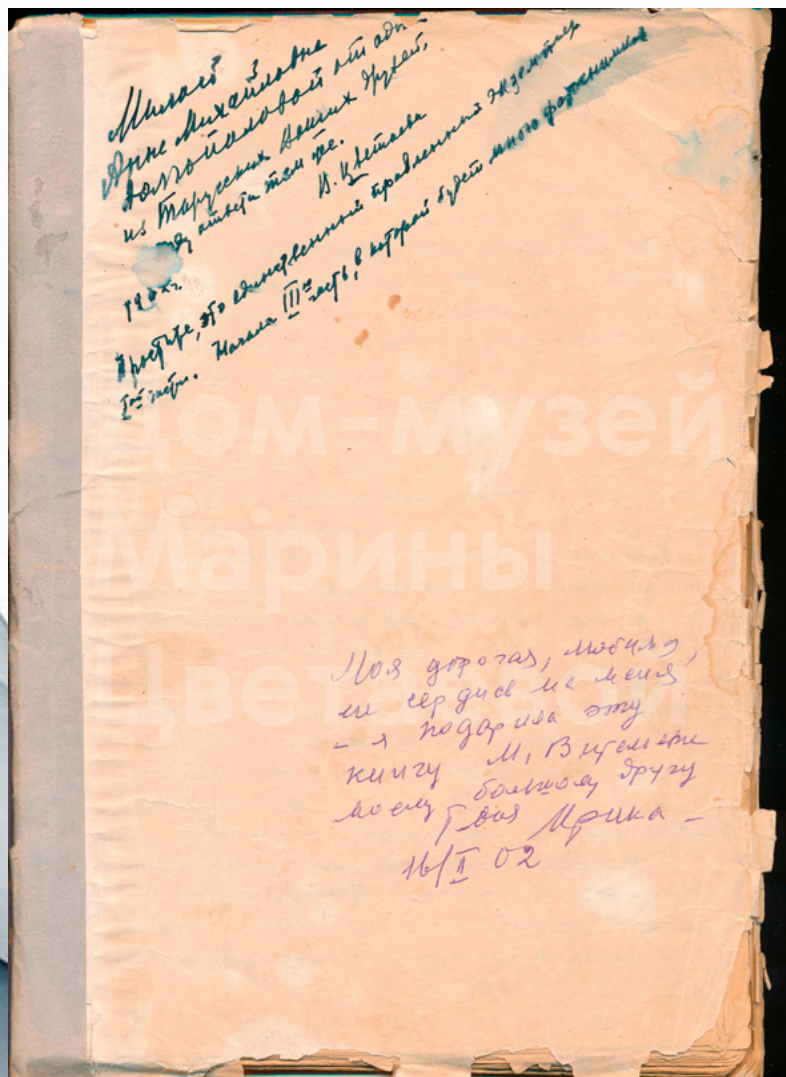 Милой
Анне Михайловне
Долгополовой от одн-
из Тарусских Ваших друзей,
ответа там же.
В. Цветаева
Простите, это единственный правленный экземпляр
Iой части. Начала IIIю часть, в которой будет много
Дом-музей
Марины
Цветаевой
Моя дорогая, любимая,
не сердись на меня
– я подарила эту
книгу М,
моему большому другу
Твоя Ирика –
16/II 02